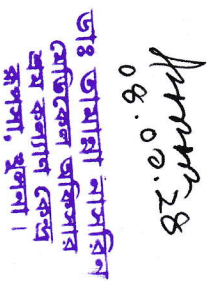 ০৪.০৩.২৪
ডাঃ তামান্না নাসরিন
মেডিকেল অফিসার
শ্রম কল্যাণ কেন্দ্র
রূপসা, খুলনা।